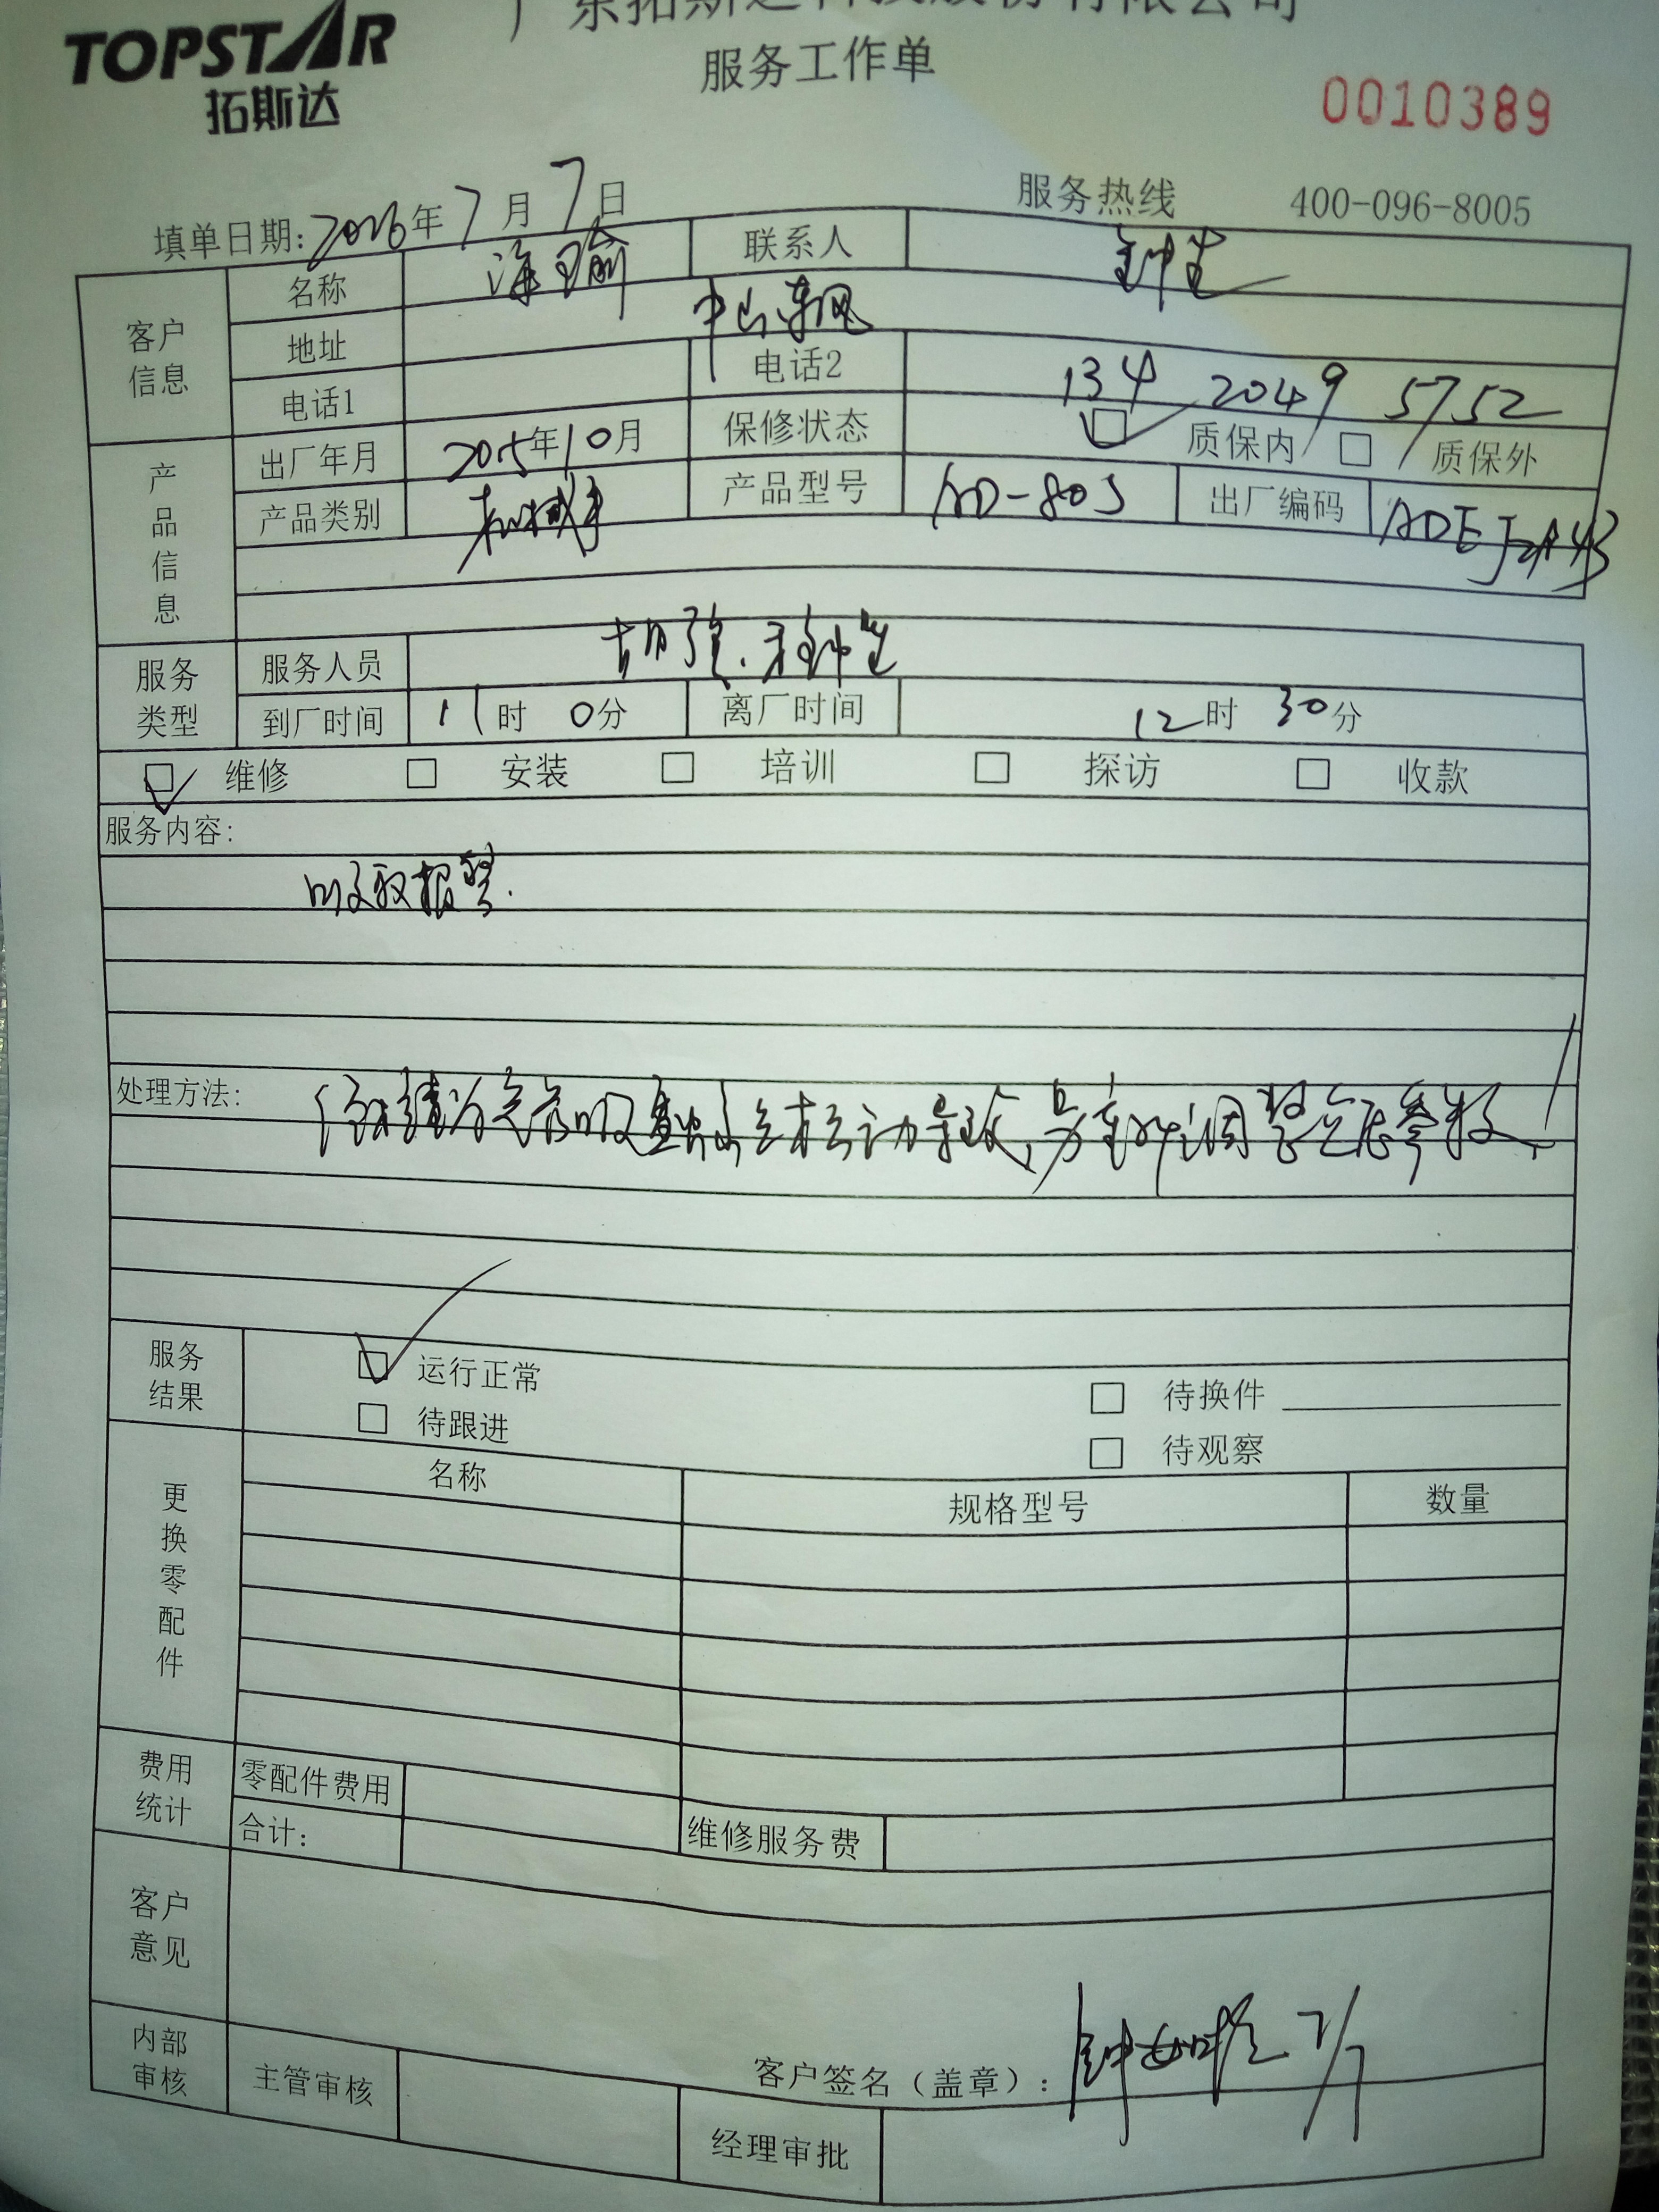 TOPSTAR
拓斯达
广东拓斯达科技股份有限公司
服务工作单
0010389
服务热线 400-096-8005
填单日期: 2016年7月7日
客户信息
名称 联系人
地址 中山东凤
电话1 电话2 134 2049 5752
产品信息
出厂年月 2015年10月 保修状态 质保内 质保外
产品类别 机械手 产品型号 AD-80S 出厂编码
服务类型
服务人员
到厂时间 11时 0分 离厂时间 12时 30分
维修 安装 培训 探访 收款
服务内容:
吸取报警.
处理方法:
调整
服务结果
运行正常 待换件
待跟进 待观察
更换零配件
名称 规格型号 数量
费用统计
零配件费用
合计: 维修服务费
客户意见
客户签名（盖章）: 7/7
内部审核
主管审核 经理审批